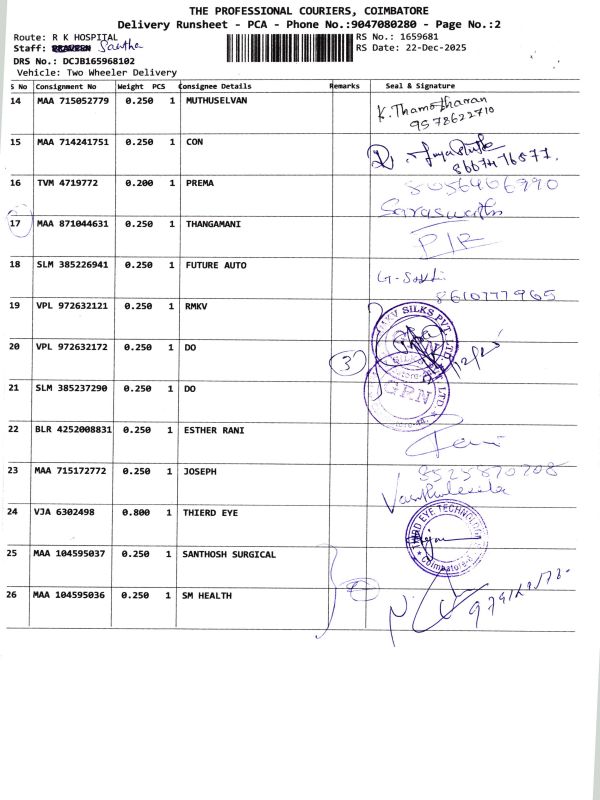 THE PROFESSIONAL COURIERS, COIMBATORE
Delivery Runsheet - PCA - Phone No.:9047080280 - Page No.:2
Route: R K HOSPITAL
RS No.: 1659681
Staff: Santha
RS Date: 22-Dec-2025
DRS No.: DCJB165968102
Vehicle: Two Wheeler Delivery
S No Consignment No Weight PCS Consignee Details Remarks Seal & Signature
14 MAA 715052779 0.250 1 MUTHUSELVAN K. Thamotharan
9578622710
15 MAA 714241751 0.250 1 CON
8667476877.
16 TVM 4719772 0.200 1 PREMA 8056466990
Saraswathi
17 MAA 871044631 0.250 1 THANGAMANI P/R
18 SLM 385226941 0.250 1 FUTURE AUTO G-Sakthi
8610777965
19 VPL 972632121 0.250 1 RMKV
20 VPL 972632172 0.250 1 DO 3
21 SLM 385237290 0.250 1 DO GRN
22 BLR 4252008831 0.250 1 ESTHER RANI
23 MAA 715172772 0.250 1 JOSEPH 8525870708
24 VJA 6302498 0.800 1 THIERD EYE THIRD EYE TECHNOLOGY Coimbatore
25 MAA 104595037 0.250 1 SANTHOSH SURGICAL
26 MAA 104595036 0.250 1 SM HEALTH